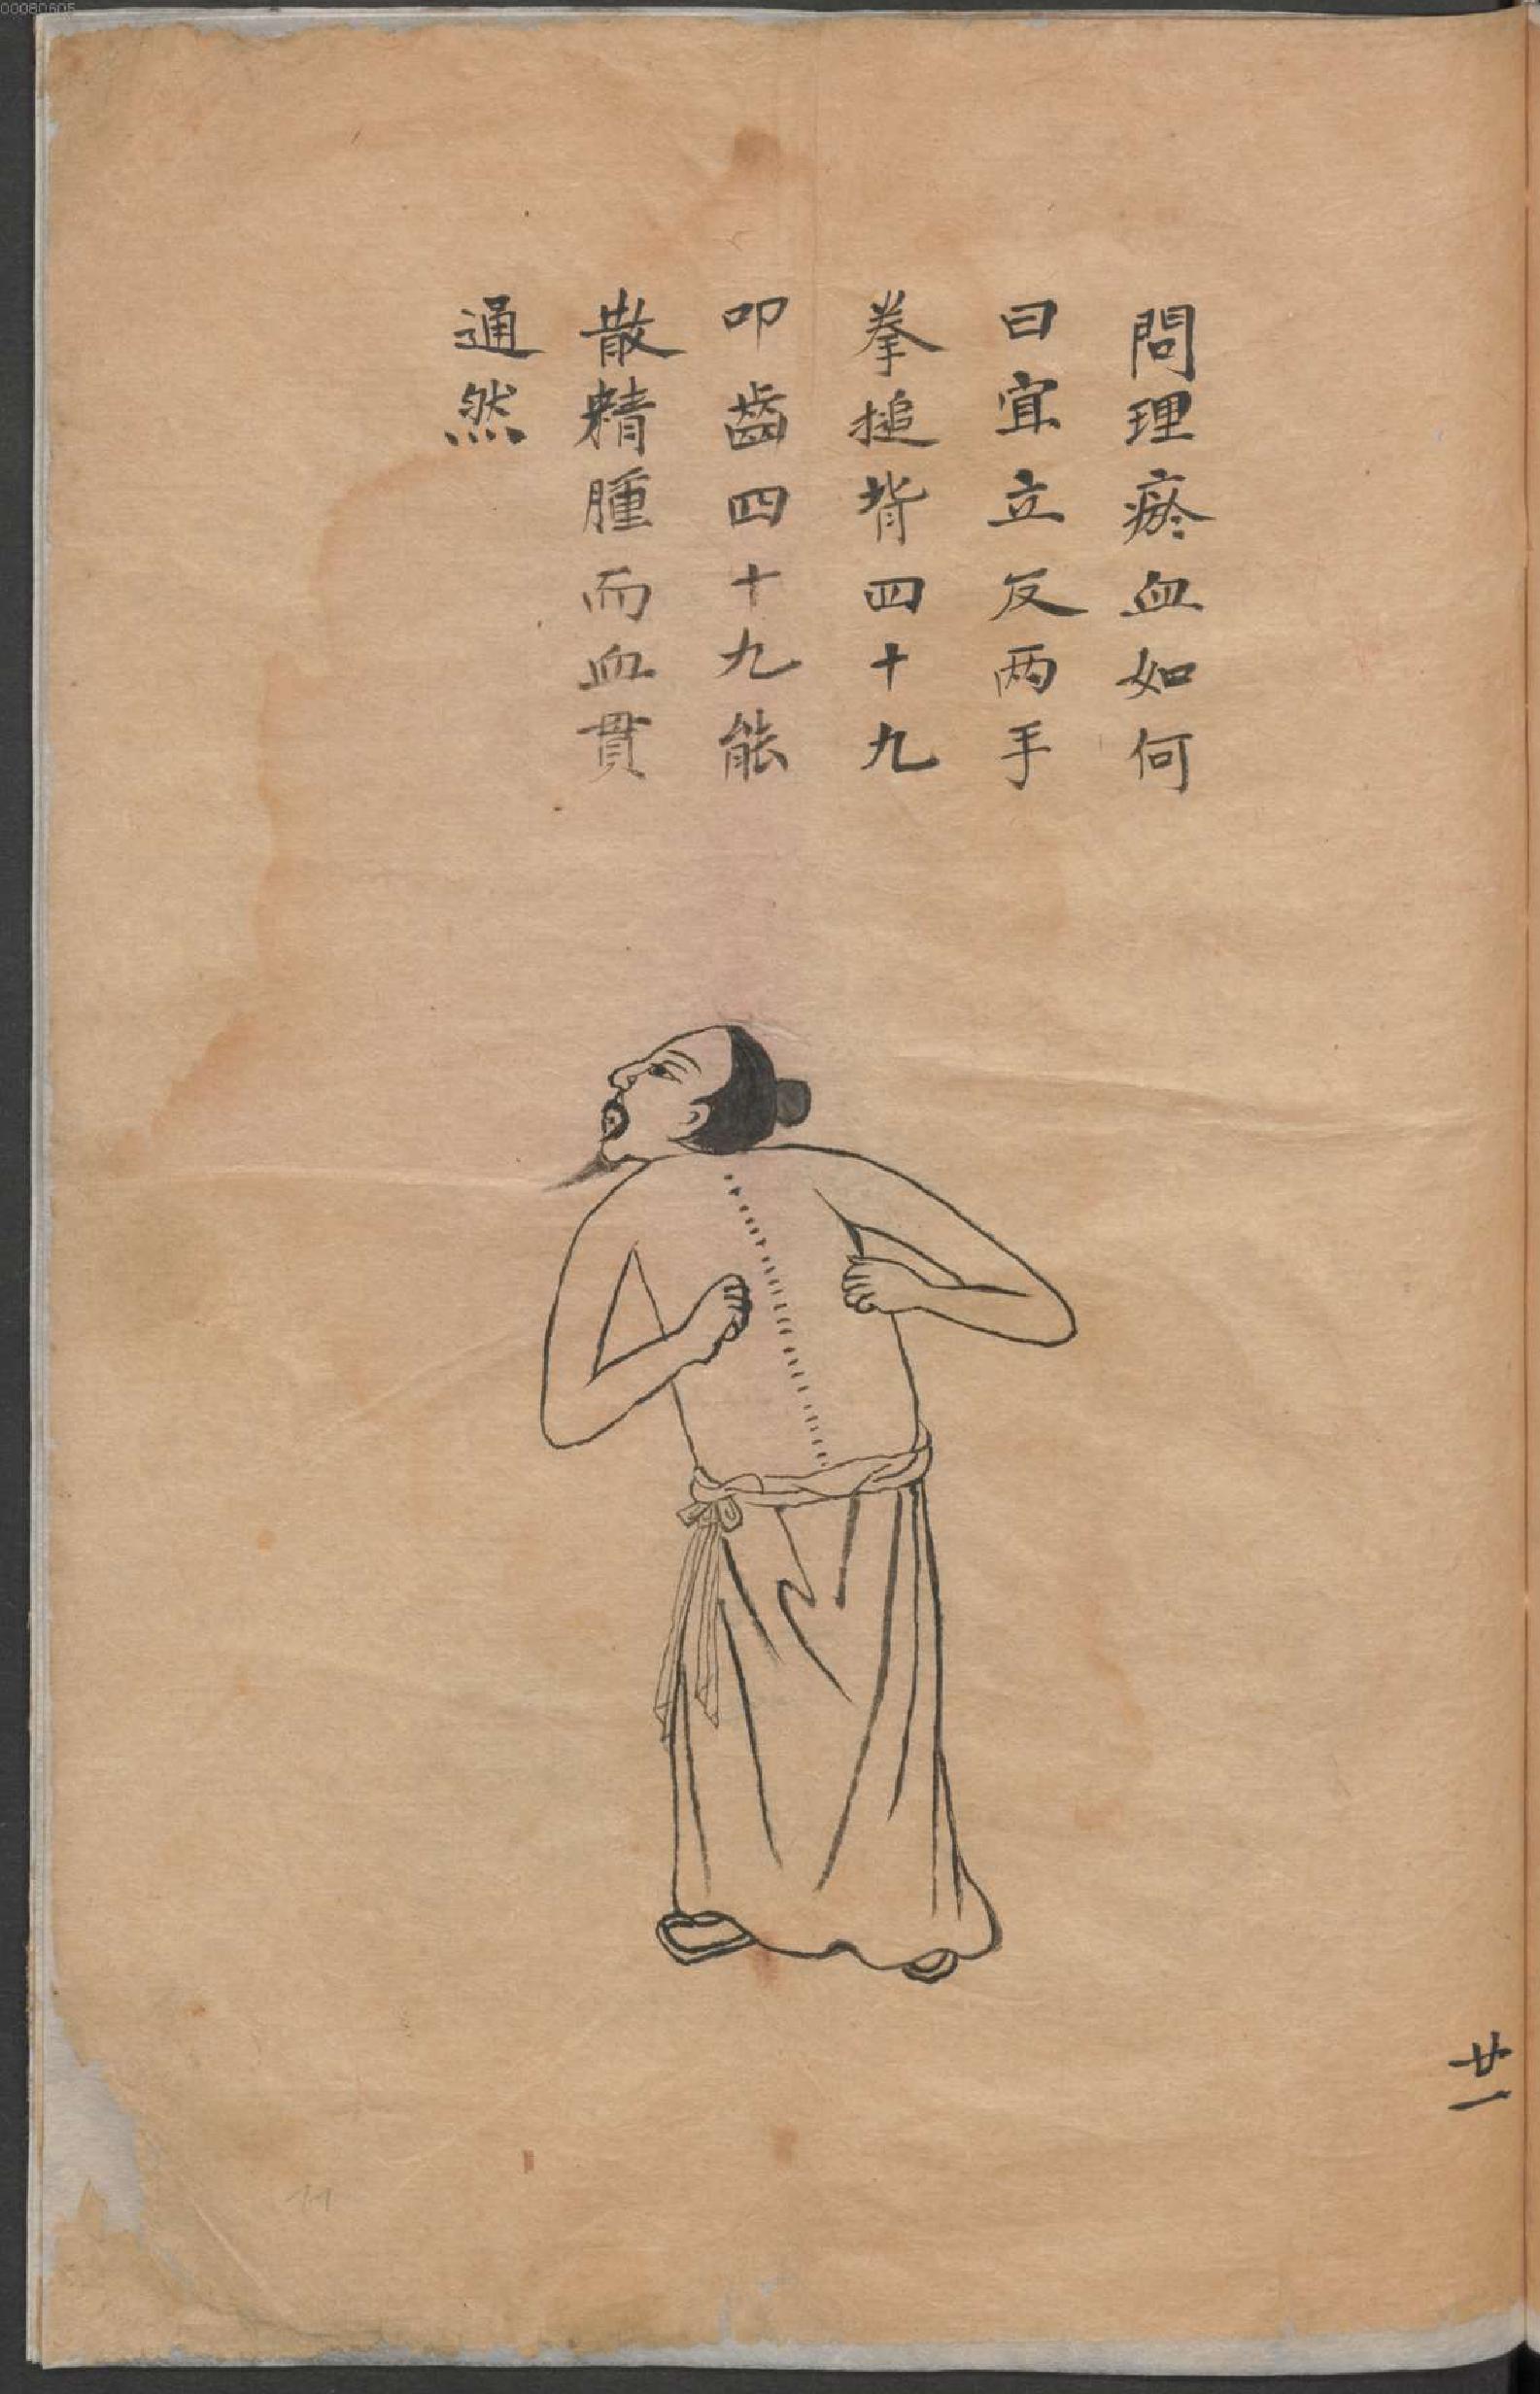 問理瘀血如何
曰宜立反两手
拳搥背四十九
叩齒四十九能
散精腫而血貫
通然
廿一
00080605